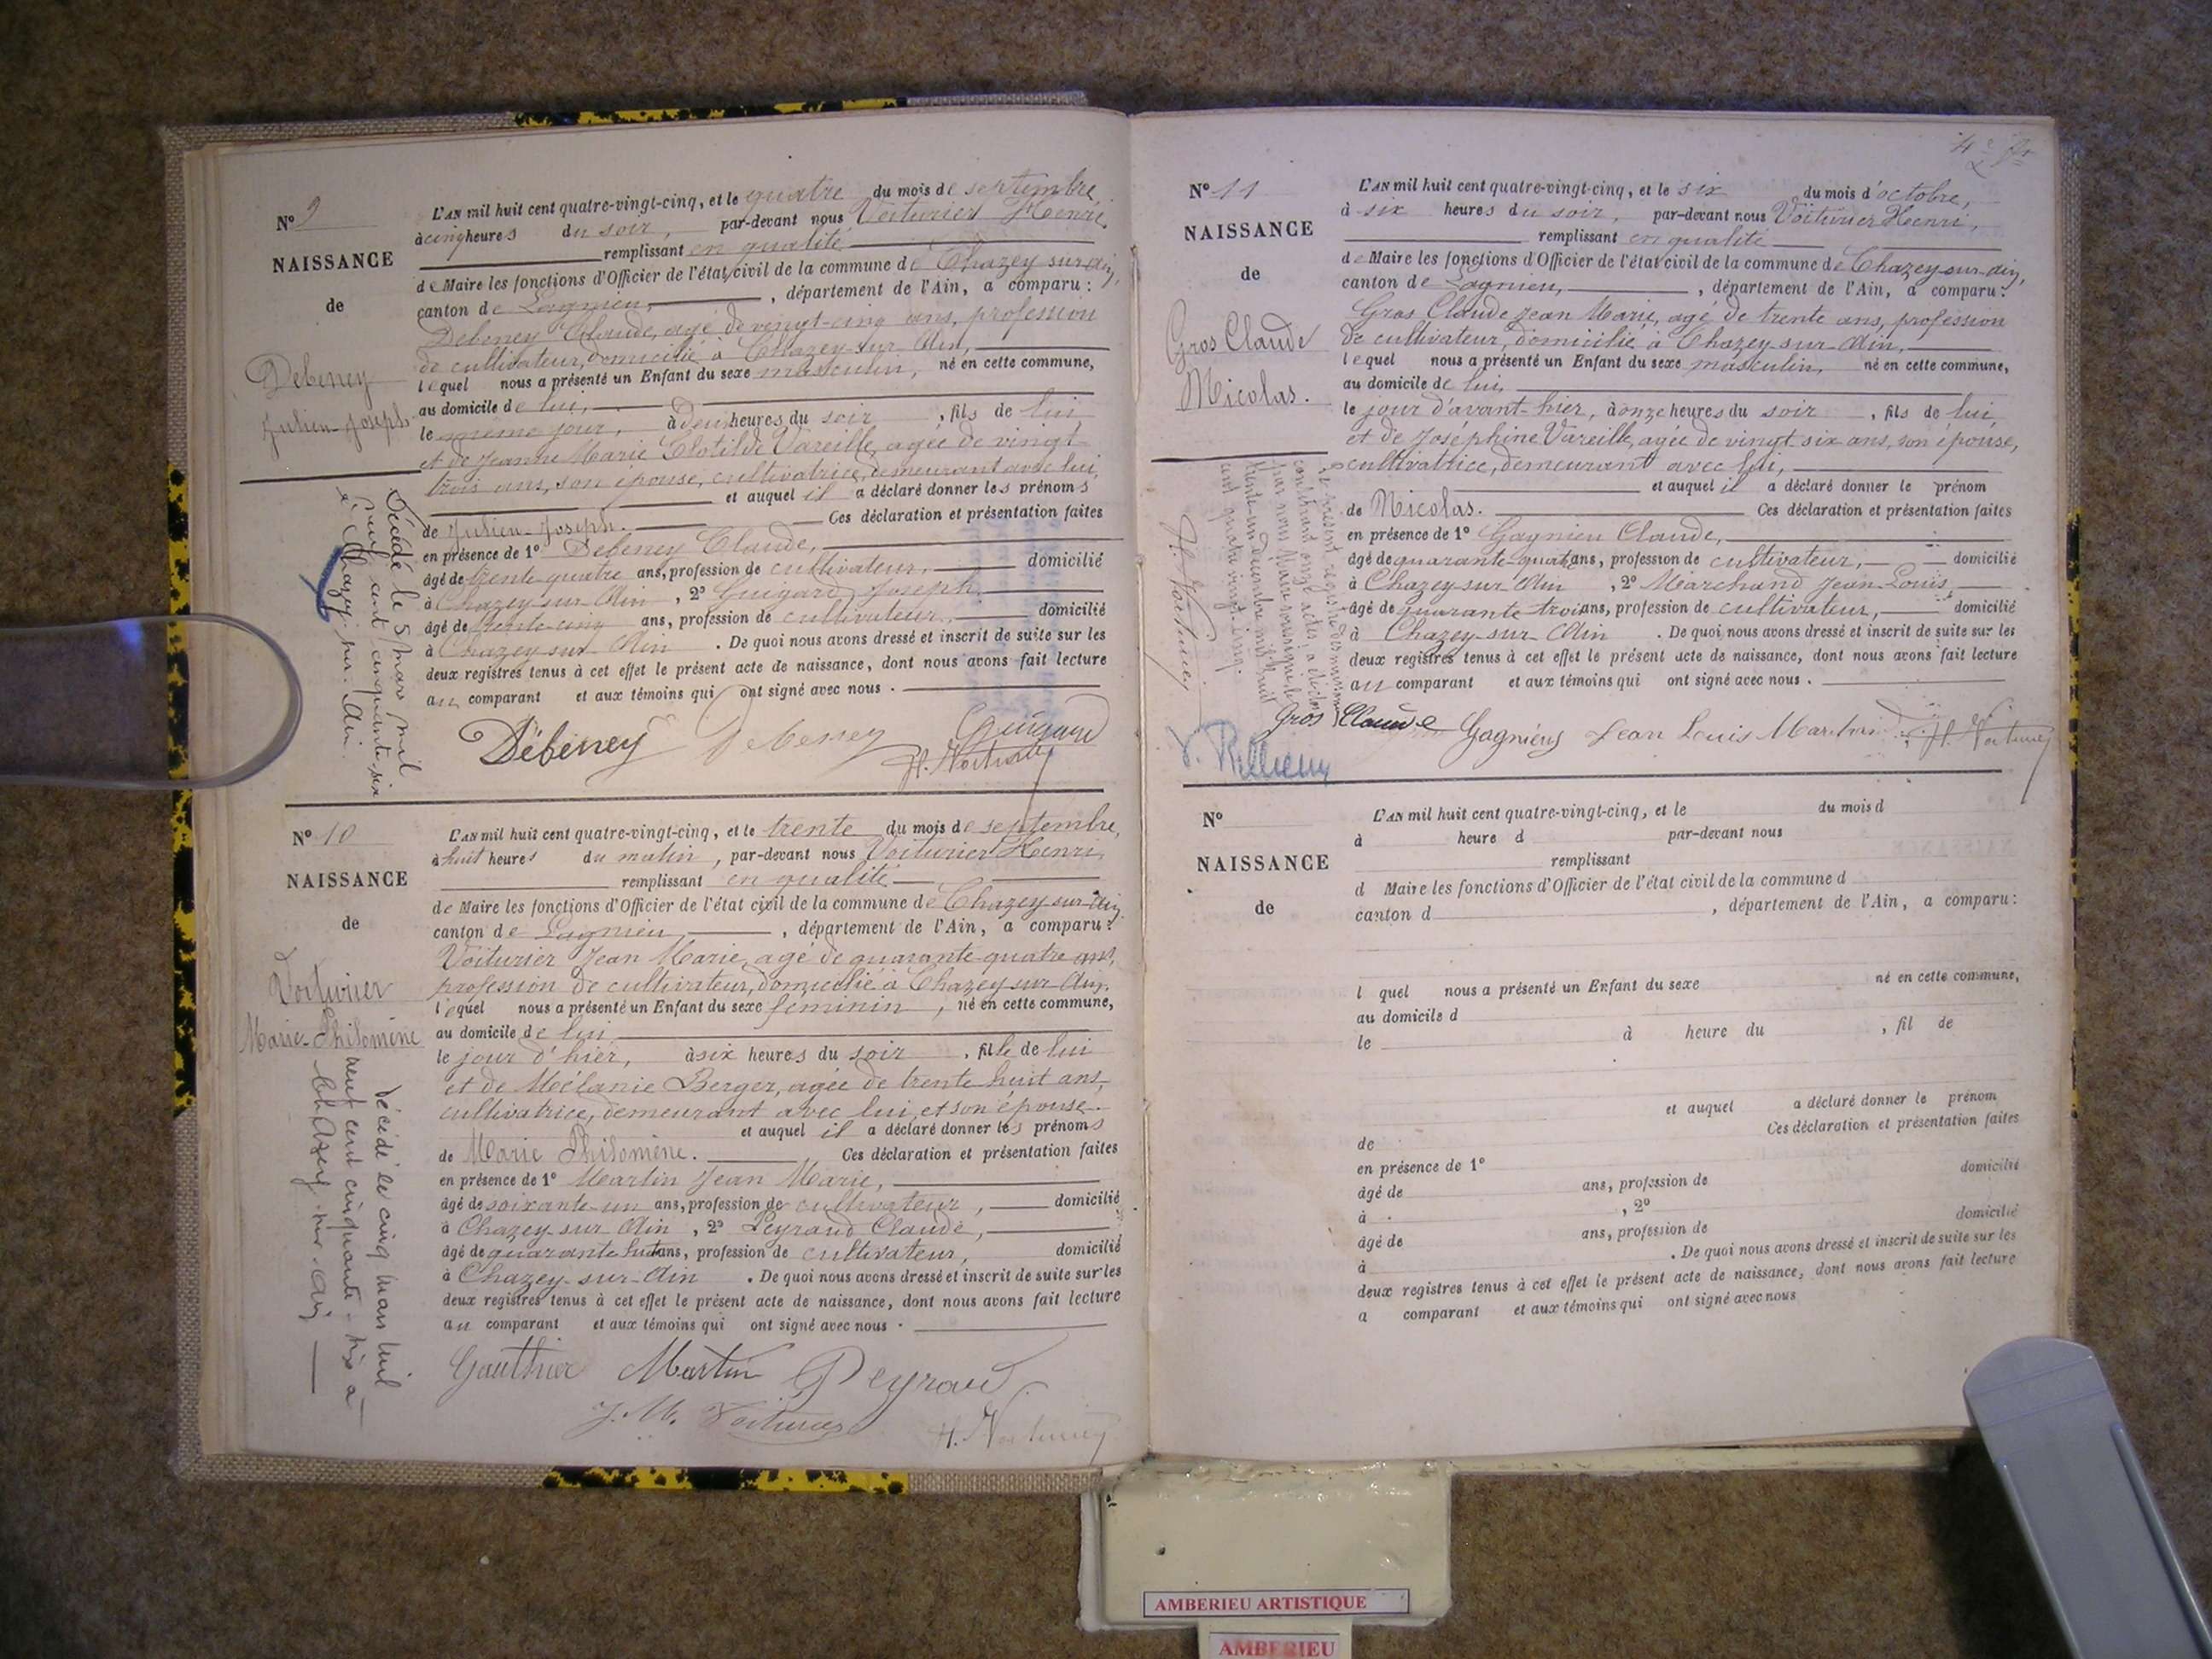 N° 9
NAISSANCE
de
Debeney
Julien-Joseph
L'AN mil huit cent quatre-vingt-cinq, et le quatre du mois de septembre,
à cinq heures du soir, par-devant nous Voiturier Henri,
remplissant en qualité
de Maire les fonctions d'Officier de l'état civil de la commune de Chazey-sur-Ain,
canton de Lagnieu, , département de l'Ain, a comparu :
Debeney Claude, agé de vingt-cinq ans, profession
de cultivateur, domicilié à Chazey-sur-Ain,
lequel nous a présenté un Enfant du sexe masculin, né en cette commune,
au domicile de lui,
le même jour, à deux heures du soir , fils de lui
et de Jeanne Marie Clotilde Vareille, agée de vingt
trois ans, son épouse, cultivatrice, demeurant avec lui,
et auquel il a déclaré donner les prénoms
de Julien-Joseph. Ces déclaration et présentation faites
en présence de 1° Debeney Claude,
âgé de trente-quatre ans, profession de cultivateur, domicilié
à Chazey-sur-Ain , 2° Guigard Joseph,
âgé de trente-cinq ans, profession de cultivateur, domicilié
à Chazey-sur-Ain . De quoi nous avons dressé et inscrit de suite sur les
deux registres tenus à cet effet le présent acte de naissance, dont nous avons fait lecture
au comparant et aux témoins qui ont signé avec nous .
Décédé le 5 mars mil
neuf cent cinquante-six
à Chazey-sur-Ain.
Débeney Debeney Guigard
H. Voiturier
N° 10
NAISSANCE
de
Voiturier
Marie-Philomène
L'AN mil huit cent quatre-vingt-cinq, et le trente du mois de septembre,
à huit heures du matin , par-devant nous Voiturier Henri,
remplissant en qualité
de Maire les fonctions d'Officier de l'état civil de la commune de Chazey-sur-Ain,
canton de Lagnieu , département de l'Ain, a comparu :
Voiturier Jean Marie, agé de quarante-quatre ans,
profession de cultivateur, domicilié à Chazey-sur-Ain,
lequel nous a présenté un Enfant du sexe féminin , né en cette commune,
au domicile de lui
le jour d'hier, à six heures du soir , fille de lui
et de Mélanie Berger, agée de trente huit ans,
cultivatrice, demeurant avec lui, et son épouse.
et auquel il a déclaré donner les prénoms
de Marie Philomène. Ces déclaration et présentation faites
en présence de 1° Martin Jean Marie,
âgé de soixante-un ans, profession de cultivateur , domicilié
à Chazey-sur-Ain , 2° Peyraud Claude,
âgé de quarante huit ans, profession de cultivateur, domicilié
à Chazey-sur-Ain . De quoi nous avons dressé et inscrit de suite sur les
deux registres tenus à cet effet le présent acte de naissance, dont nous avons fait lecture
au comparant et aux témoins qui ont signé avec nous .
Décédée le cinq mars mil
neuf cent cinquante-six à
Chazey-sur-Ain
Gauthier Martin Peyraud
J. M. Voiturier
H. Voiturier
N° 11
NAISSANCE
de
Gros Claude
Nicolas.
L'AN mil huit cent quatre-vingt-cinq, et le six du mois d'octobre,
à six heures du soir, par-devant nous Voiturier Henri,
remplissant en qualité
de Maire les fonctions d'Officier de l'état civil de la commune de Chazey-sur-Ain,
canton de Lagnieu, , département de l'Ain, a comparu :
Gros Claude Jean Marie, agé de trente ans, profession
de cultivateur, domicilié à Chazey-sur-Ain,
lequel nous a présenté un Enfant du sexe masculin, né en cette commune,
au domicile de lui,
le jour d'avant-hier, à onze heures du soir , fils de lui,
et de Joséphine Vareille, agée de vingt six ans, son épouse,
cultivatrice, demeurant avec lui,
et auquel il a déclaré donner le prénom
de Nicolas. Ces déclaration et présentation faites
en présence de 1° Gagnieu Claude,
âgé de quarante-quatre ans, profession de cultivateur, domicilié
à Chazey-sur-Ain , 2° Marchand Jean-Louis,
âgé de quarante trois ans, profession de cultivateur, domicilié
à Chazey-sur-Ain . De quoi nous avons dressé et inscrit de suite sur les
deux registres tenus à cet effet le présent acte de naissance, dont nous avons fait lecture
au comparant et aux témoins qui ont signé avec nous .
Le présent registre des naissances
contenant onze actes a été clos
par nous Maire soussigné le
trente-un décembre mil huit
cent quatre vingt-cinq.
H. Voiturier
Gros Claude Gagnieux Jean Louis Marchand H. Voiturier
N°
NAISSANCE
de
L'AN mil huit cent quatre-vingt-cinq, et le du mois d
à heure d par-devant nous
remplissant
d Maire les fonctions d'Officier de l'état civil de la commune d
canton d , département de l'Ain, a comparu :
l quel nous a présenté un Enfant du sexe né en cette commune,
au domicile d
le à heure du , fil de
et auquel a déclaré donner le prénom
de Ces déclaration et présentation faites
en présence de 1°
âgé de ans, profession de domicilié
à , 2°
âgé de ans, profession de domicilié
à . De quoi nous avons dressé et inscrit de suite sur les
deux registres tenus à cet effet le présent acte de naissance, dont nous avons fait lecture
a comparant et aux témoins qui ont signé avec nous
AMBERIEU ARTISTIQUE
AMBERIEU